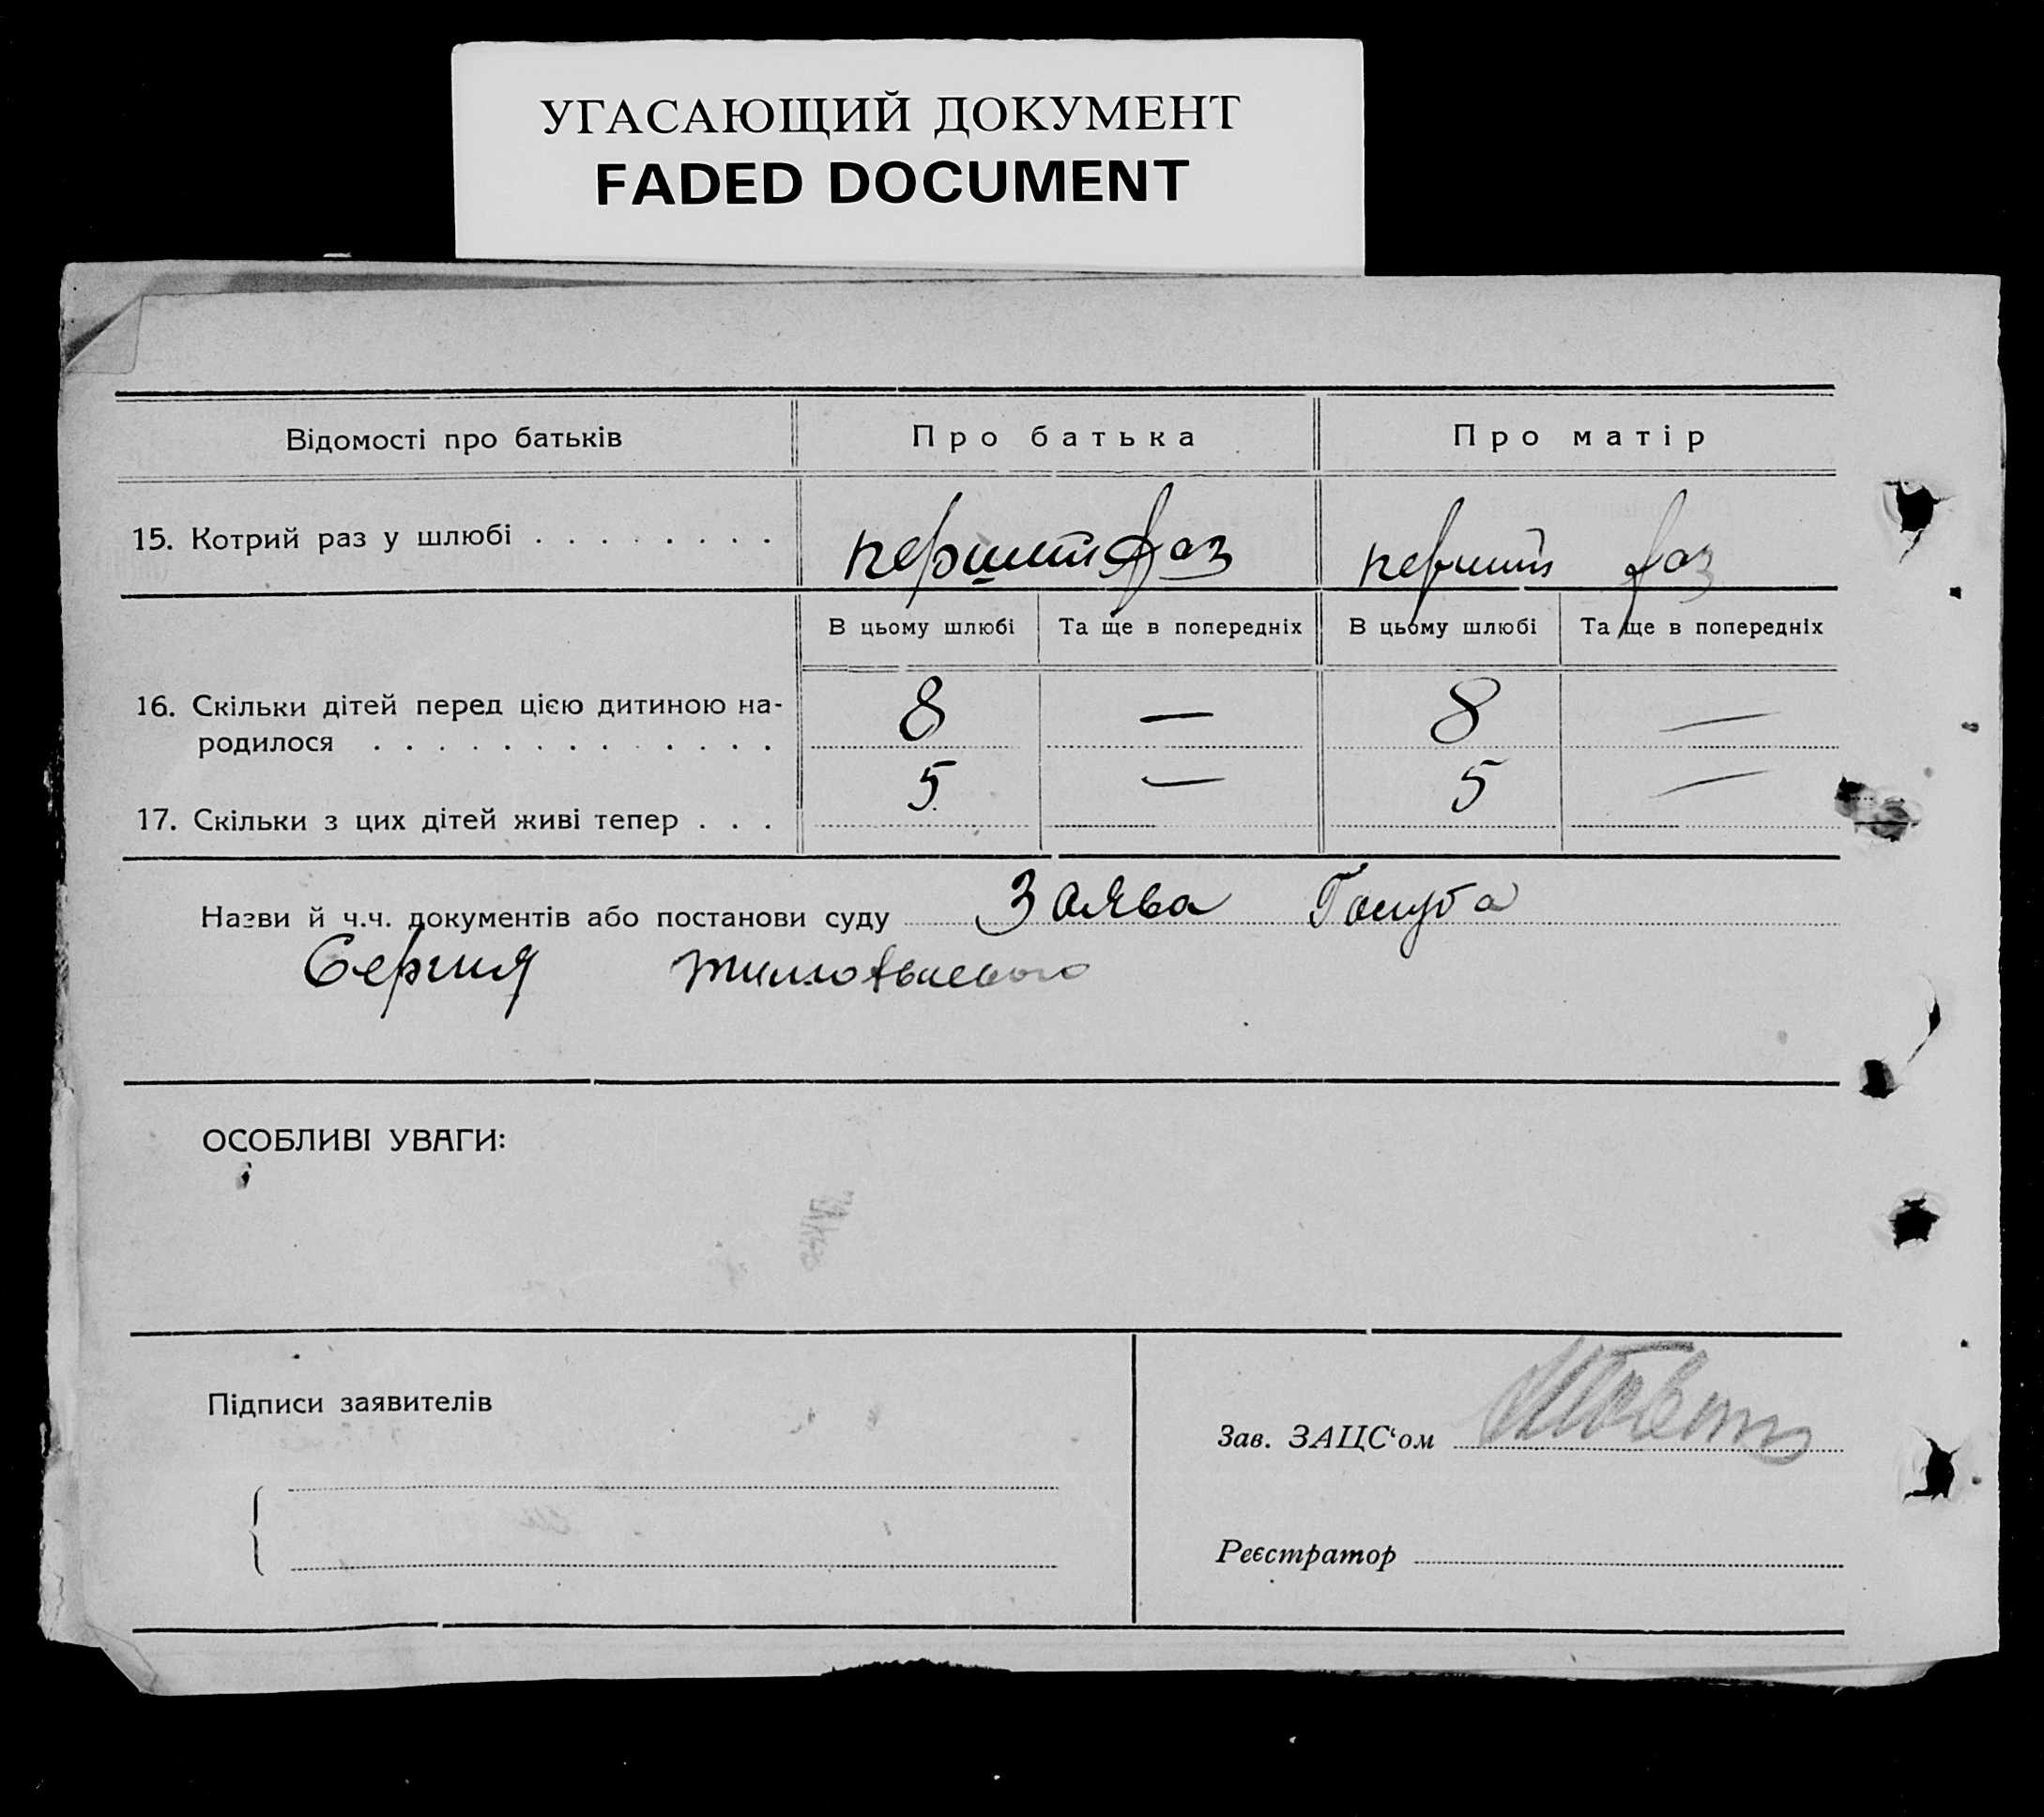 УГАСАЮЩИЙ ДОКУМЕНТ
FADED DOCUMENT
Відомості про батьків Про батька Про матір
15. Котрий раз у шлюбі . . . . . . . . перший раз перший раз
В цьому шлюбі Та ще в попередніх В цьому шлюбі Та ще в попередніх
16. Скільки дітей перед цією дитиною на-
родилося . . . . . . . . . . . . . 8 — 8 —
17. Скільки з цих дітей живі тепер . . . 5 — 5 —
Назви й ч.ч. документів або постанови суду Заява Голуба
Сергия
ОСОБЛИВІ УВАГИ:
Підписи заявителів
Зав. ЗАЦС‘ом
Реєстратор